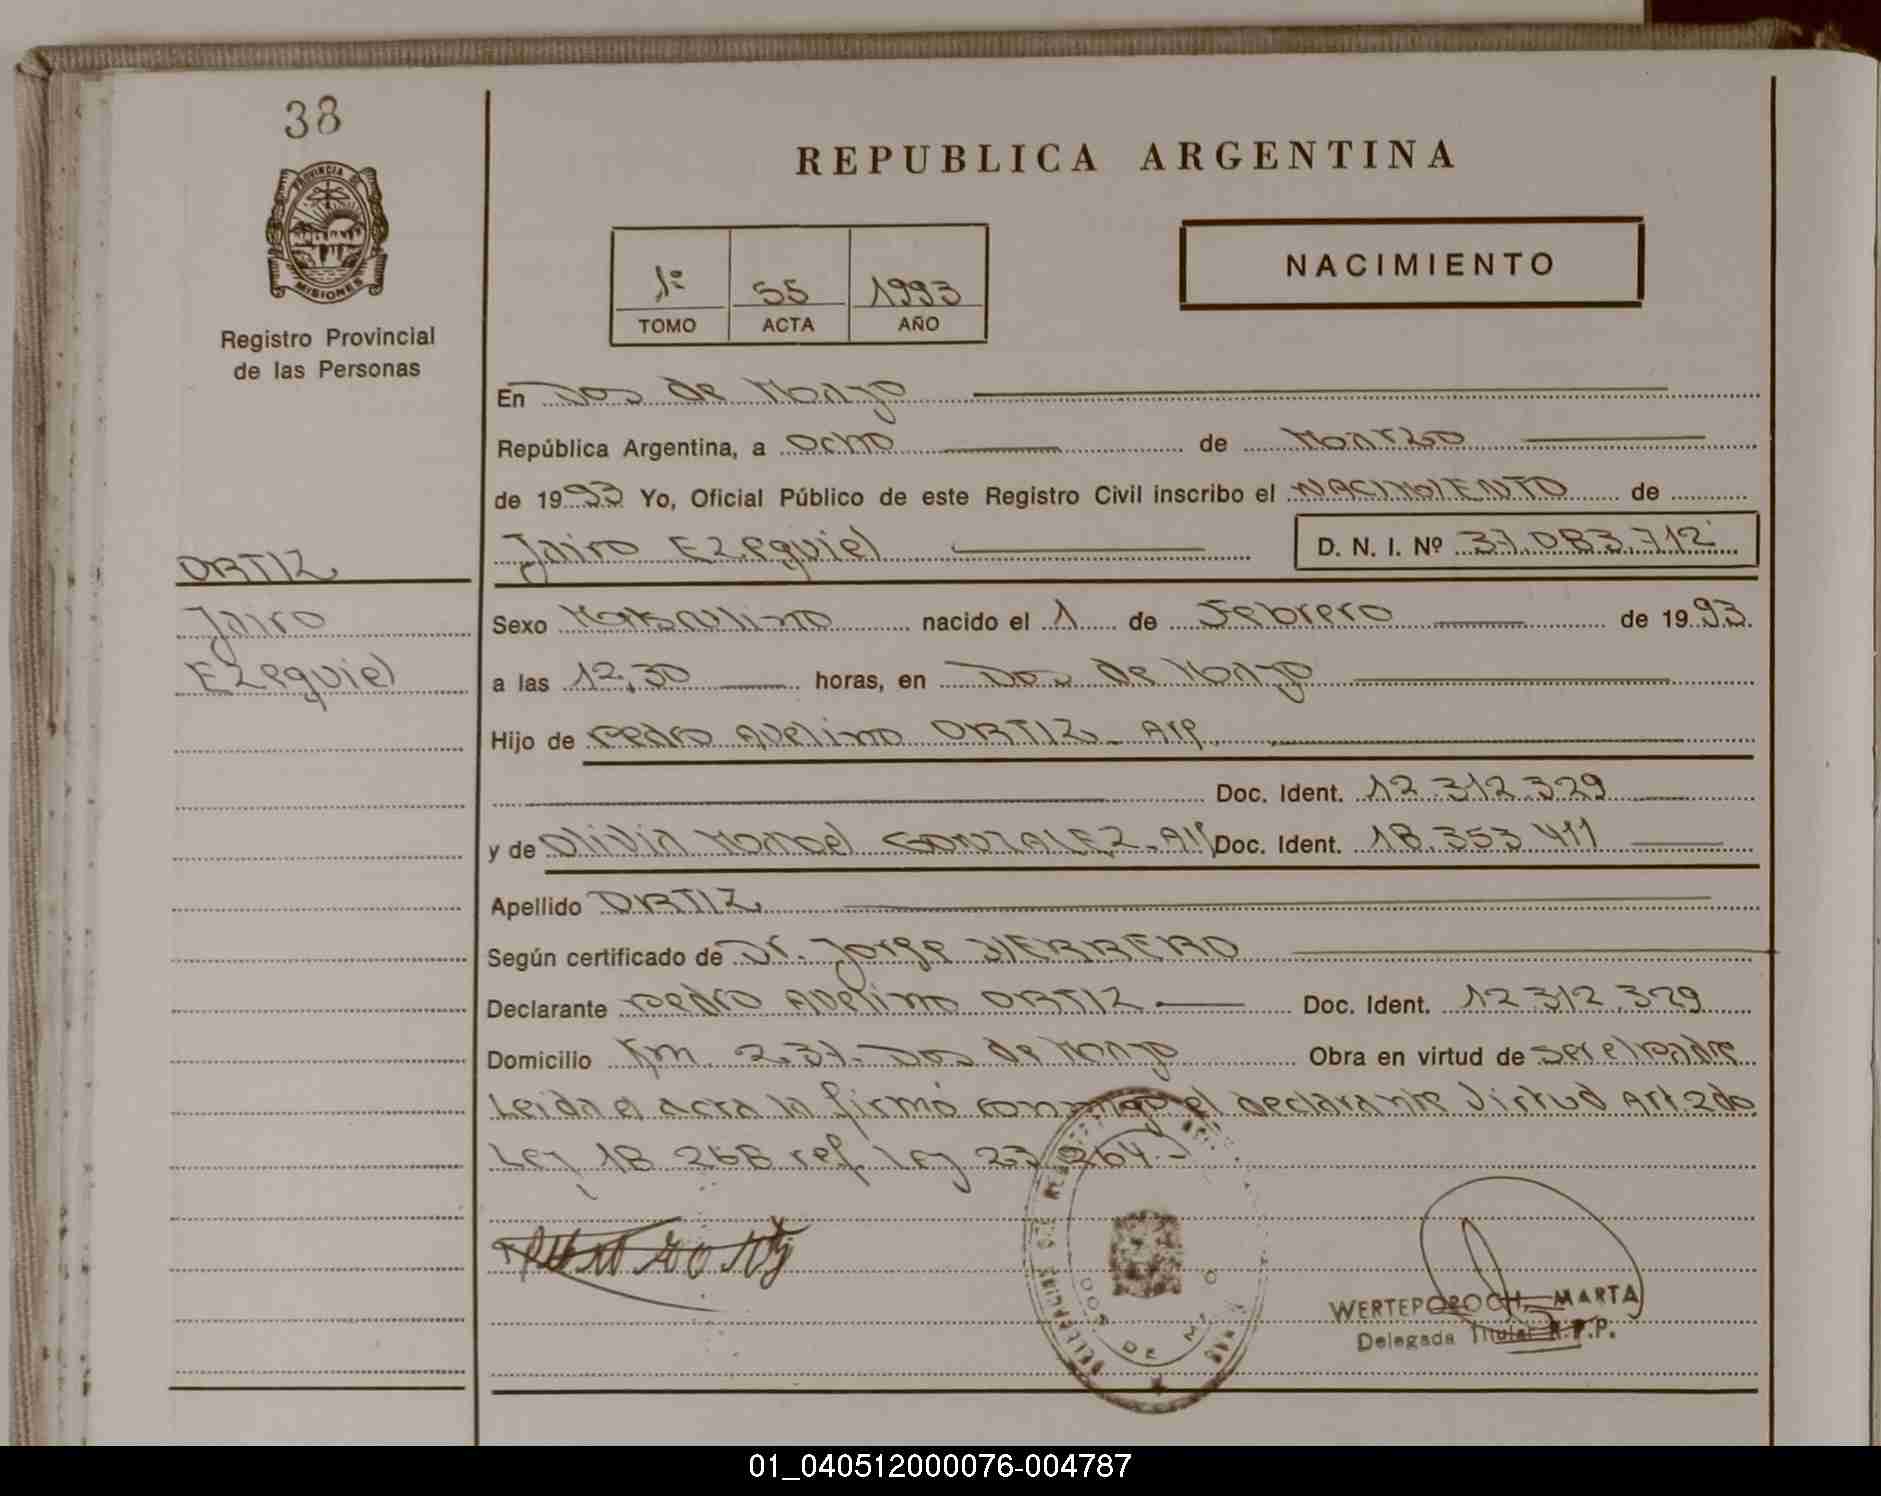 38
REPUBLICA ARGENTINA
PROVINCIA DE
MISIONES
Registro Provincial
de las Personas
1º 55 1993
TOMO ACTA AÑO
NACIMIENTO
En Dos de Mayo
República Argentina, a ocho de Marzo
de 1993 Yo, Oficial Público de este Registro Civil inscribo el NACIMIENTO de
Jairo Ezequiel D. N. I. Nº 37.083.712
ORTIZ
Jairo
Ezequiel
Sexo Masculino nacido el 1 de Febrero de 1993
a las 12,30 horas, en Dos de Mayo
Hijo de Pedro Avelino ORTIZ- Arg.
Doc. Ident. 12.312.329
y de Olivia Mabel GONZALEZ-Arg Doc. Ident. 18.353.411
Apellido ORTIZ
Según certificado de Dr. Jorge HERRERO
Declarante Pedro Avelino ORTIZ Doc. Ident. 12.312.329
Domicilio Km. 237. Dos de Mayo Obra en virtud de ser el padre
Leida el acta la firmó conmigo el declarante Virtud Art. 2do
Ley 18.268 ref. Ley 23.264.-
DOS DE MAYO
WERTEPOROCH, MARTA
Delegada Titular R.P.P.
01_040512000076-004787